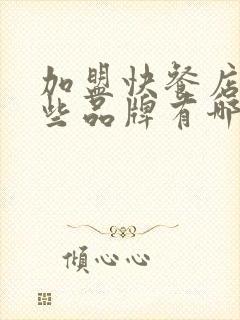 加盟快餐店
些品牌有哪
倾心心